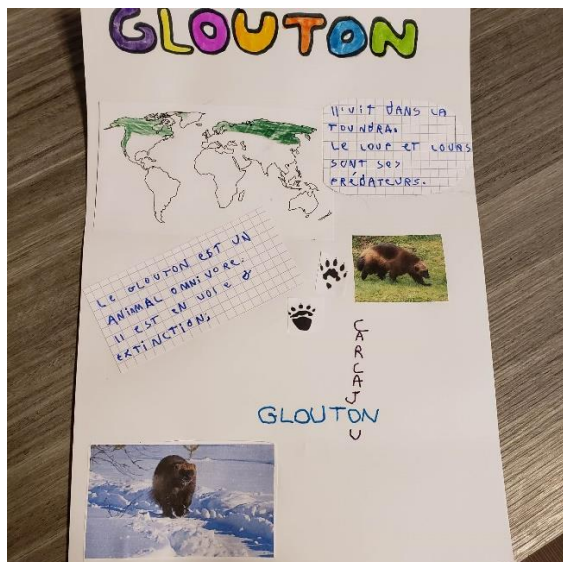 GLOUTON
Il vit DANS LA
TOUNDRA.
LE LOUP ET L'OURS
SONT SES
PRÉDATEURS.
LE GLOUTON EST UN
ANIMAL OMNIVORE.
Il EST EN VOIE d
EXTINCTION.
CARCAJOU
GLOUTON